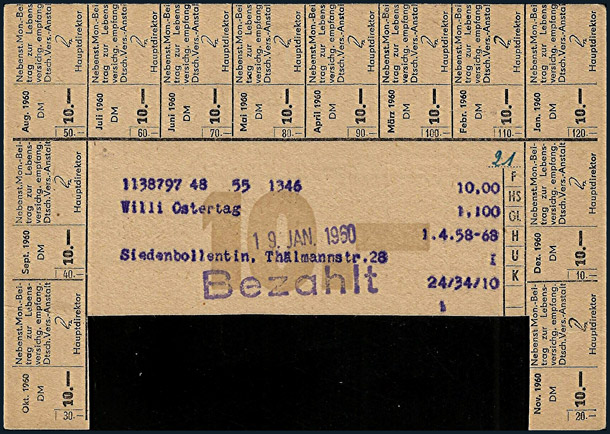 Nebenst.Mon.-Bei-
trag zur Lebens-
versichg. empfang.
Dtsch.Vers.-Anstalt
Hauptdirektor
Aug. 1960
DM
10.—
50.-
Nebenst.Mon.-Bei-
trag zur Lebens-
versichg. empfang.
Dtsch.Vers.-Anstalt
Hauptdirektor
Juli 1960
DM
10.—
60.-
Nebenst.Mon.-Bei-
trag zur Lebens-
versichg. empfang.
Dtsch.Vers.-Anstalt
Hauptdirektor
Juni 1960
DM
10.—
70.-
Nebenst.Mon.-Bei-
trag zur Lebens-
versichg. empfang.
Dtsch.Vers.-Anstalt
Hauptdirektor
Mai 1960
DM
10.—
80.-
Nebenst.Mon.-Bei-
trag zur Lebens-
versichg. empfang.
Dtsch.Vers.-Anstalt
Hauptdirektor
April 1960
DM
10.—
90.-
Nebenst.Mon.-Bei-
trag zur Lebens-
versichg. empfang.
Dtsch.Vers.-Anstalt
Hauptdirektor
März 1960
DM
10.—
100.-
Nebenst.Mon.-Bei-
trag zur Lebens-
versichg. empfang.
Dtsch.Vers.-Anstalt
Hauptdirektor
Febr. 1960
DM
10.—
110.-
Nebenst.Mon.-Bei-
trag zur Lebens-
versichg. empfang.
Dtsch.Vers.-Anstalt
Hauptdirektor
Jan. 1960
DM
10.—
120.-
Nebenst.Mon.-Bei-
trag zur Lebens-
versichg. empfang.
Dtsch.Vers.-Anstalt
Hauptdirektor
Sept. 1960
DM
10.—
40.-
Nebenst.Mon.-Bei-
trag zur Lebens-
versichg. empfang.
Dtsch.Vers.-Anstalt
Hauptdirektor
Okt. 1960
DM
10.—
30.-
21
1138797 48 55 1346 10,00
Willi Ostertag 1,100
10.—
19. JAN. 1960 1.4.58-68
Siedenbollentin, Thälmannstr.28 I
Bezahlt 24/34/10
1
F
HS
GL
H
U
K
Nebenst.Mon.-Bei-
trag zur Lebens-
versichg. empfang.
Dtsch.Vers.-Anstalt
Hauptdirektor
Dez. 1960
DM
10.—
10.-
Nebenst.Mon.-Bei-
trag zur Lebens-
versichg. empfang.
Dtsch.Vers.-Anstalt
Hauptdirektor
Nov. 1960
DM
10.—
20.-